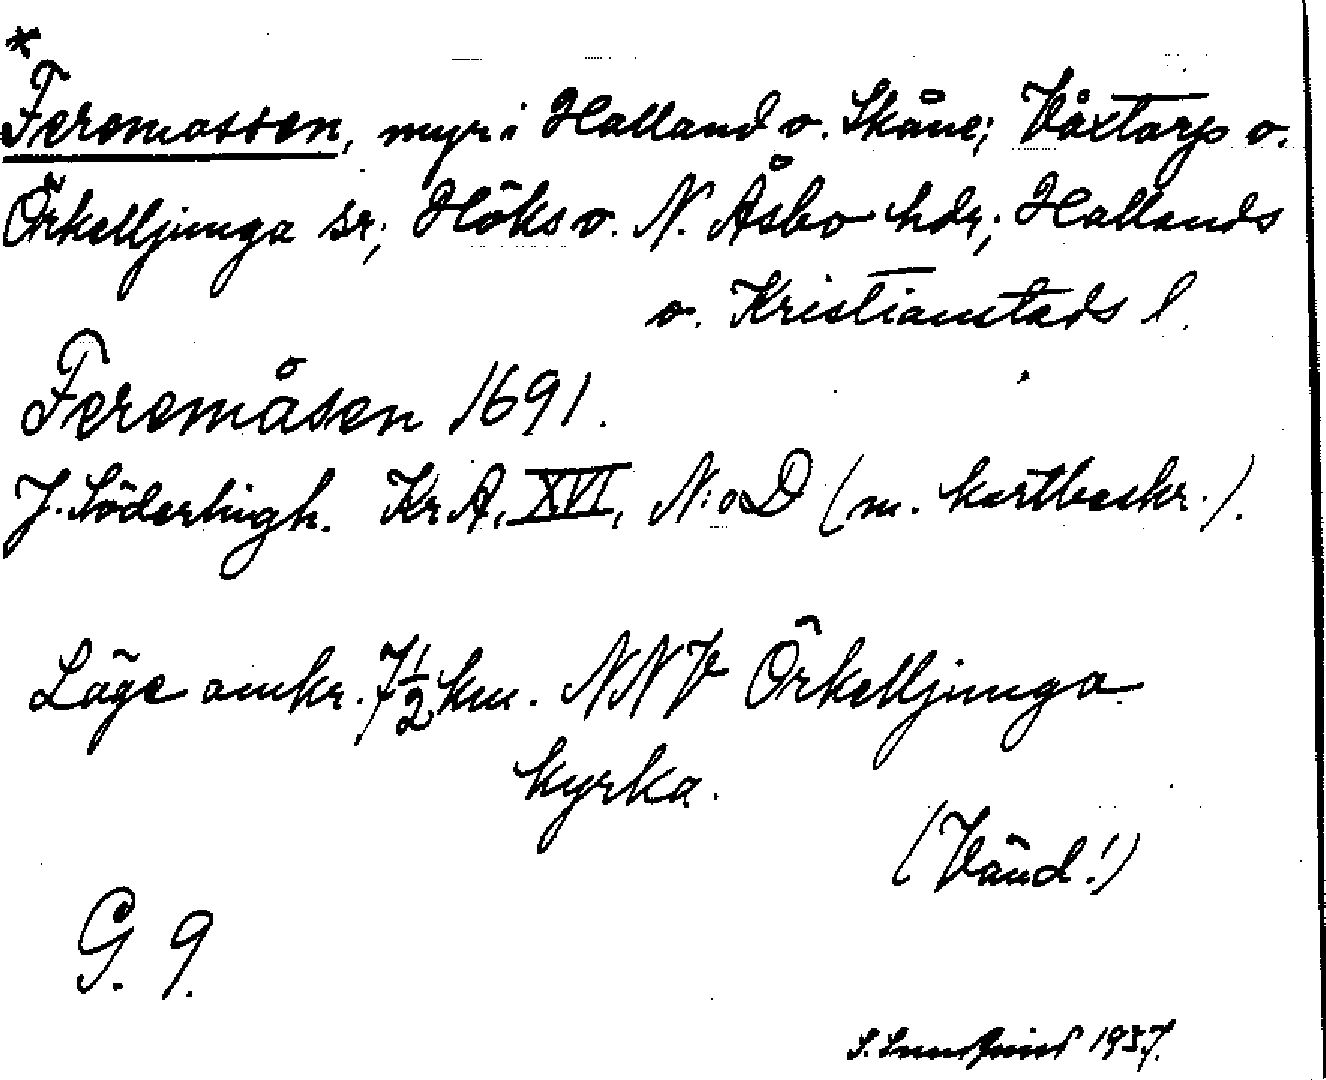 *
Feremossen, myr i Halland o. Skåne; Våxtorp o.
Örkelljunga sr; Höks o. N. Åsbo hdr; Hallands
o. Kristianstads l.
Feremåsen 1691.
J. Söderhigh. KrA, XVI, N:o D (m. kartbeskr.).
Läge omkr. 7 1/2 km. NNV Örkelljunga
kyrka.
(Vänd!)
G. 9.
1937.